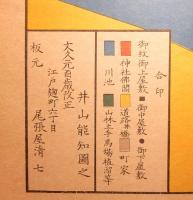 合印
御紋御上屋敷 ■御中屋敷 ●御下屋敷
神社佛閣
道路并橋
町家
川池
山林土手馬場植溜等
井山能知圖之
文久元酉歳改正
江戸麹町六丁目
板元 尾張屋清七